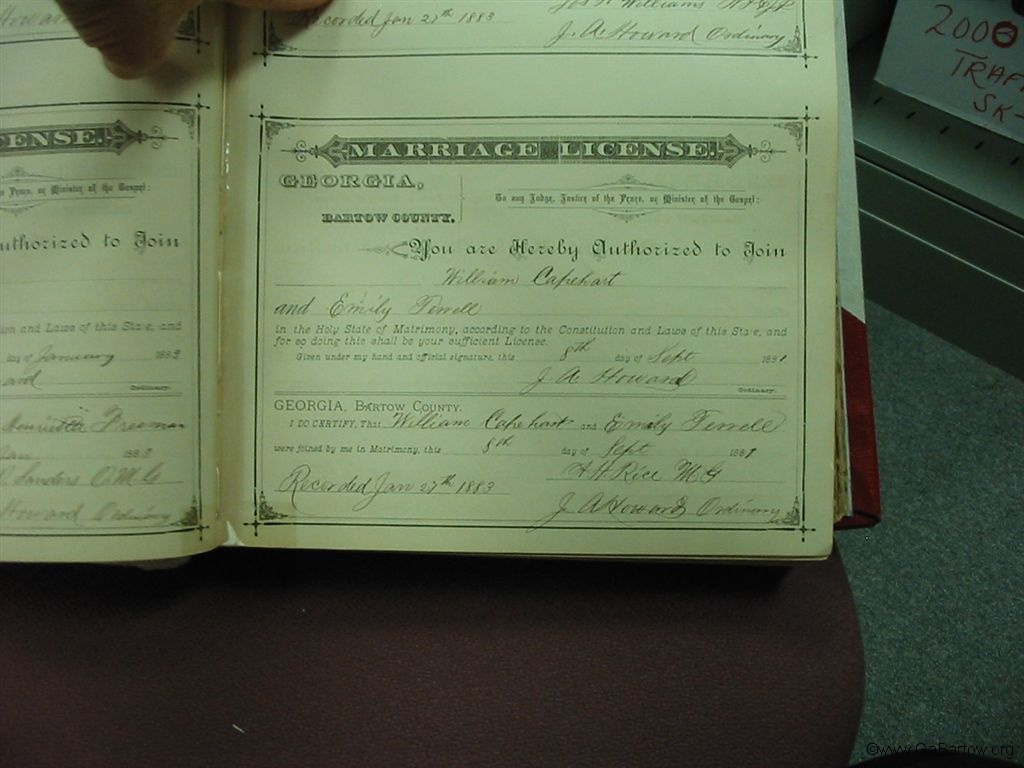 Howard
Recorded Jan 27th 1883
Jos. P. Williams
J. A. Howard Ordinary
ENSE.
the Peace, or Minister of the Gospel:
uthorized to Join
tion and Laws of this State, and
day of January 1883
ard
Ordinary.
Henrietta Freeman
1883
Sanders O.M.G
Howard Ordinary
MARRIAGE LICENSE.
GEORGIA,
BARTOW COUNTY.
To any Judge, Justice of the Peace, or Minister of the Gospel:
You are Hereby Authorized to Join
William Capehart
and Emily Terrell
in the Holy State of Matrimony, according to the Constitution and Laws of this State, and
for so doing this shall be your sufficient License.
Given under my hand and official signature, this 8th day of Sept 1881
J. A. Howard
Ordinary.
GEORGIA, BARTOW COUNTY.
I DO CERTIFY, That William Capehart and Emily Terrell
were joined by me in Matrimony, this 8th day of Sept 1881
Rice M G
Recorded Jan 27th 1883
J A Howard Ordinary
2000
TRAF
SK-
©www.GaBartow.org